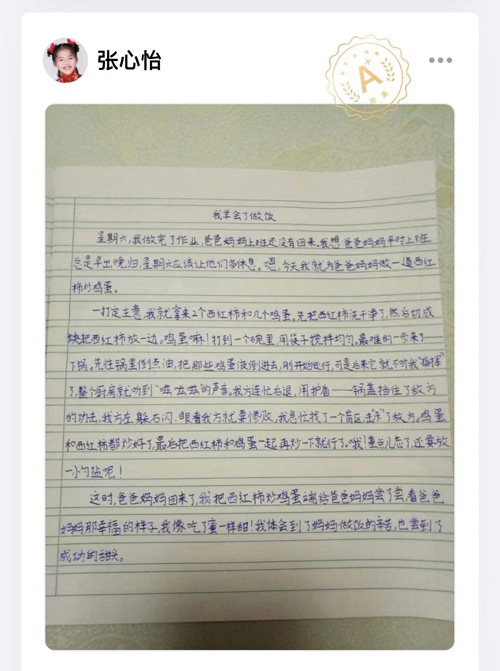 张心怡
A+
优秀
我学会了做饭
星期六,我做完了作业,爸爸妈妈上班还没有回来,我想爸爸妈妈平时上班
总是早出晚归,星期六应该让他们多休息。嗯,今天我就为爸爸妈妈做一道西红
柿炒鸡蛋。
一打定主意,我就拿来2个西红柿和几个鸡蛋。先把西红柿洗干净了,然后切成
块把西红柿放一边,鸡蛋嘛!打到一个碗里,用筷子搅拌均匀。最难的一步来了
下锅。先往锅里倒点油,把那些鸡蛋液倒进去,刚开始还行,可是后来它就不听我“指挥”
了,整个厨房就听到“啦啦啦”的声音,我方连忙后退,用护盾——锅盖挡住了敌方
的功击,我方左躲右闪,眼看我方就要惨败,我急忙找了一个盲区“击杀”了敌方。鸡蛋
和西红柿都炒好了,最后把西红柿和鸡蛋一起再炒一下就行了。“哦!差点儿忘了,还要放
一小勺盐呢!
这时,爸爸妈妈回来了,我把西红柿炒鸡蛋端给爸爸妈妈尝了尝看爸爸
妈妈那幸福的样子,我像吃了蜜一样甜!我体会到了妈妈做饭的辛苦,也尝到了
成功的甜头。